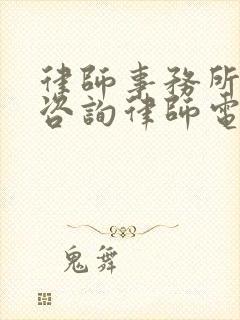 律師事務所
咨詢律師電
鬼舞